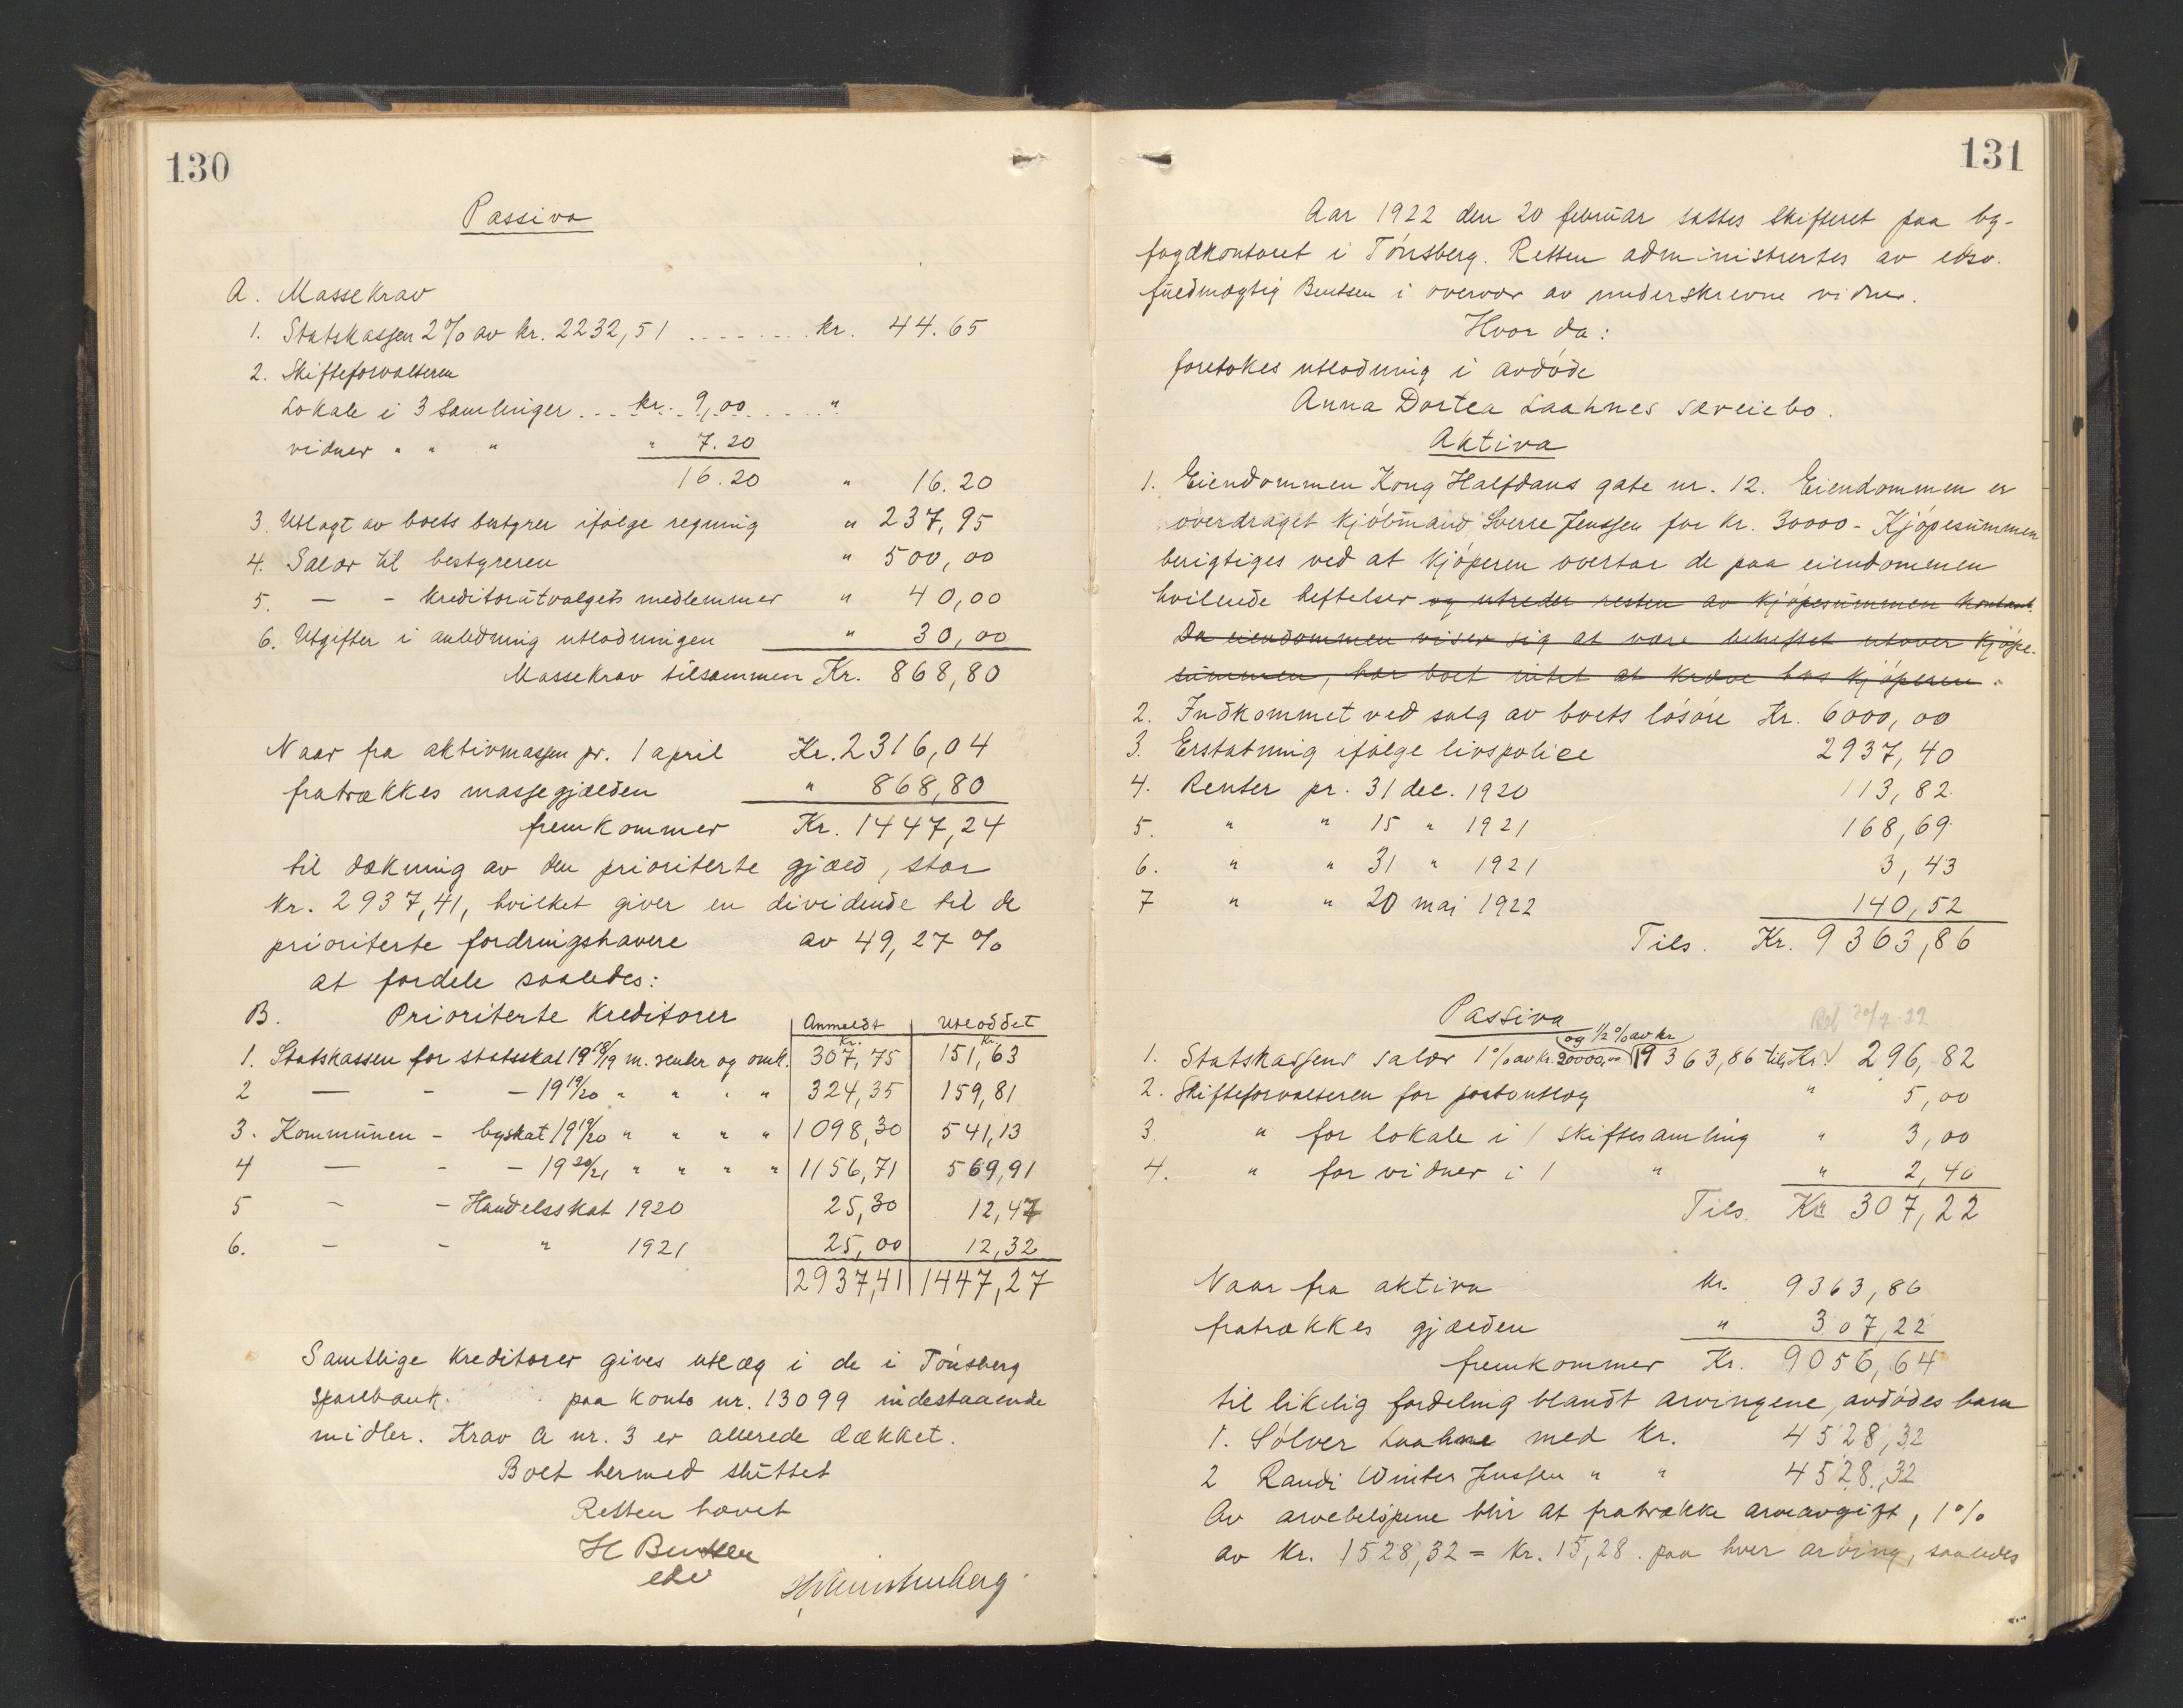 130
Passiva
A. Massekrav
1. Statskassen 2% av kr. 2232,51 ........ kr. 44.65
2. Skifteforvalteren
Lokale i 3 samlinger... kr. 9,00 ..... "
vidner " " " " 7.20
16.20 " 16.20
3. Utlagt av boets bestyrer ifølge regning " 237,95
4. Salær til bestyreren " 500,00
5. — - kreditorutvalgets medlemmer " 40,00
6. Utgifter i anledning utlodningen " 30,00
Massekrav tilsammen Kr. 868,80
Naar fra aktivmassen pr. 1 april Kr. 2316,04
fratrækkes massegjælden " 868,80
fremkommer Kr. 1447,24
til dækning av den prioriterte gjæld, stor
kr. 2937,41, hvilket giver en dividende til de
prioriterte fordringshavere av 49,27 %
at fordele saaledes:
B. Prioriterte kreditorer Anmeldt Utloddet
Kr. Kr.
1. Statskassen for statsskat 19 18/19 m. renter og omk. 307,75 151,63
2 — - - 19 19/20 " " " " 324,35 159,81
3. Kommunen - byskat 19 19/20 " " " " 1098,30 541,13
4 — - - 19 20/21 " " " " 1156,71 569,91
5 - - Handelsskat 1920 25,30 12,47
6. - - " 1921 25,00 12,32
2937,41 1447,27
Samtlige kreditorer gives utlæg i de i Tönsberg
Sparebank. paa konto nr. 13099 indestaaende
midler. Krav A nr. 3 er allerede dækket.
Boet hermed sluttet
Retten hævet
H Bentsen
edsv
131
Aar 1922 den 20 februar sattes skifteret paa by-
fogdkontoret i Tönsberg. Retten administrertes av edsv.
fuldmægtig Bentsen i overvær av underskrevne vidner.
Hvor da:
foretokes utlodning i avdöde
Anna Dortea Laahnes særeiebo.
Aktiva
1. Eiendommen Kong Halfdans gate nr. 12. Eiendommen er
overdraget kjöbmand Sverre Jenssen for kr. 30000 - Kjöpesummen
berigtiges ved at kjöperen overtar de paa eiendommen
hvilende heftelser og utreder resten av kjöpesummen kontant.
Da eiendommen viser sig at være beheftet utover kjöpe-
summen, har boet intet at kræve hos kjöperen.
2. Indkommet ved salg av boets lösöre Kr. 6000,00
3. Erstatning ifölge livspolice 2937,40
4. Renter pr. 31 dec. 1920 113,82
5. " " 15 " 1921 168,69
6. " " 31 " 1921 3,43
7 " " 20 mai 1922 140,52
Tils. Kr. 9363,86
Passiva
og 1/2 % av kr
1. Statskassens salær 1% av kr. 20000,00 19363,86 tils Kr. 296,82
2. Skifteforvalteren for portoutlæg " 5,00
3. " for lokale i 1 skiftesamling " 3,00
4. " for vidner i 1 " " 2,40
Tils. Kr 307,22
Naar fra aktiva kr. 9363,86
fratrækkes gjælden " 307,22
fremkommer Kr. 9056,64
til likelig fordeling blandt arvingene, avdödes barn
1. Sölver Laahne med kr. 4528,32
2 Randi Winter Jenssen " " 4528,32
Av arvebelöpene blir at fratrække arveavgift, 1%
av kr. 1528,32 = kr. 15,28. paa hver arving, saaledes